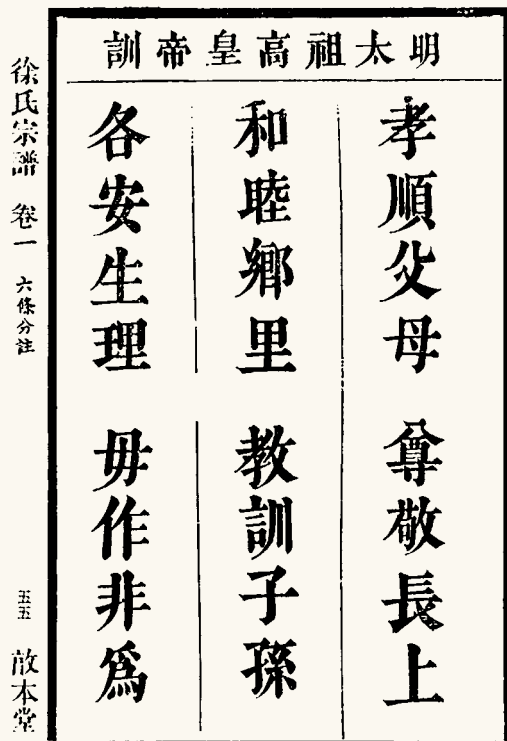 明太祖高皇帝訓
孝順父母 尊敬長上
和睦鄉里 教訓子孫
各安生理 毋作非爲
徐氏宗譜 卷一 六條分註 五五 敆本堂